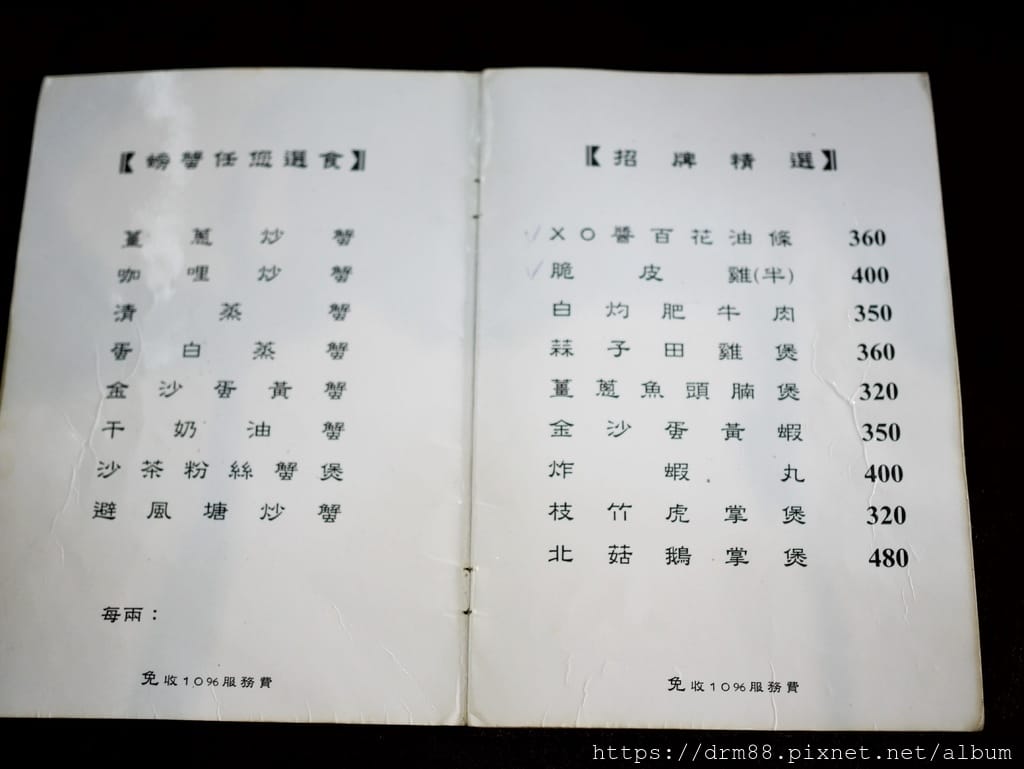 【螃蟹任您選食】
薑蔥炒蟹
咖哩炒蟹
清蒸蟹
蛋白蒸蟹
金沙蛋黃蟹
干奶油蟹
沙茶粉絲蟹煲
避風塘炒蟹
每兩：
免收10%服務費
【招牌精選】
XO醬百花油條 360
脆皮雞(半) 400
白灼肥牛肉 350
蒜子田雞煲 360
薑蔥魚頭腩煲 320
金沙蛋黃蝦 350
炸蝦丸 400
枝竹虎掌煲 320
北菇鵝掌煲 480
免收10%服務費
https://drm88.pixnet.net/album